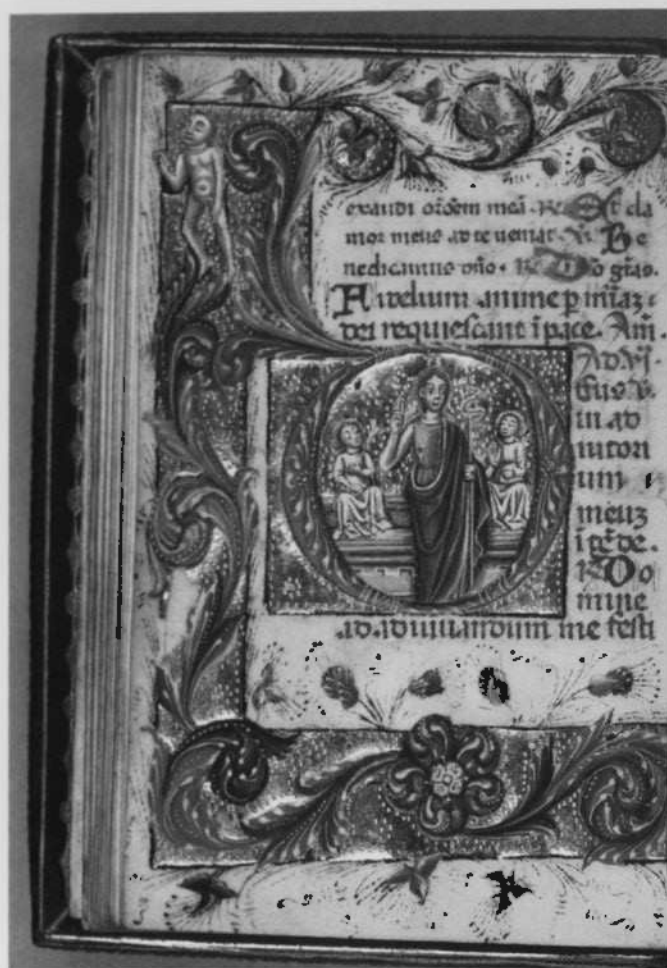 exaudi orõem meã. Et cla
mor meus ad te ueniat. Be
nedicamus dño. Deo gr̃as.
Fidelium anime p miãz
dei requiescant ĩ pace. Am̃.
in ad
iutori
um
meuz
Do
mine
ad adiuuandum me festi